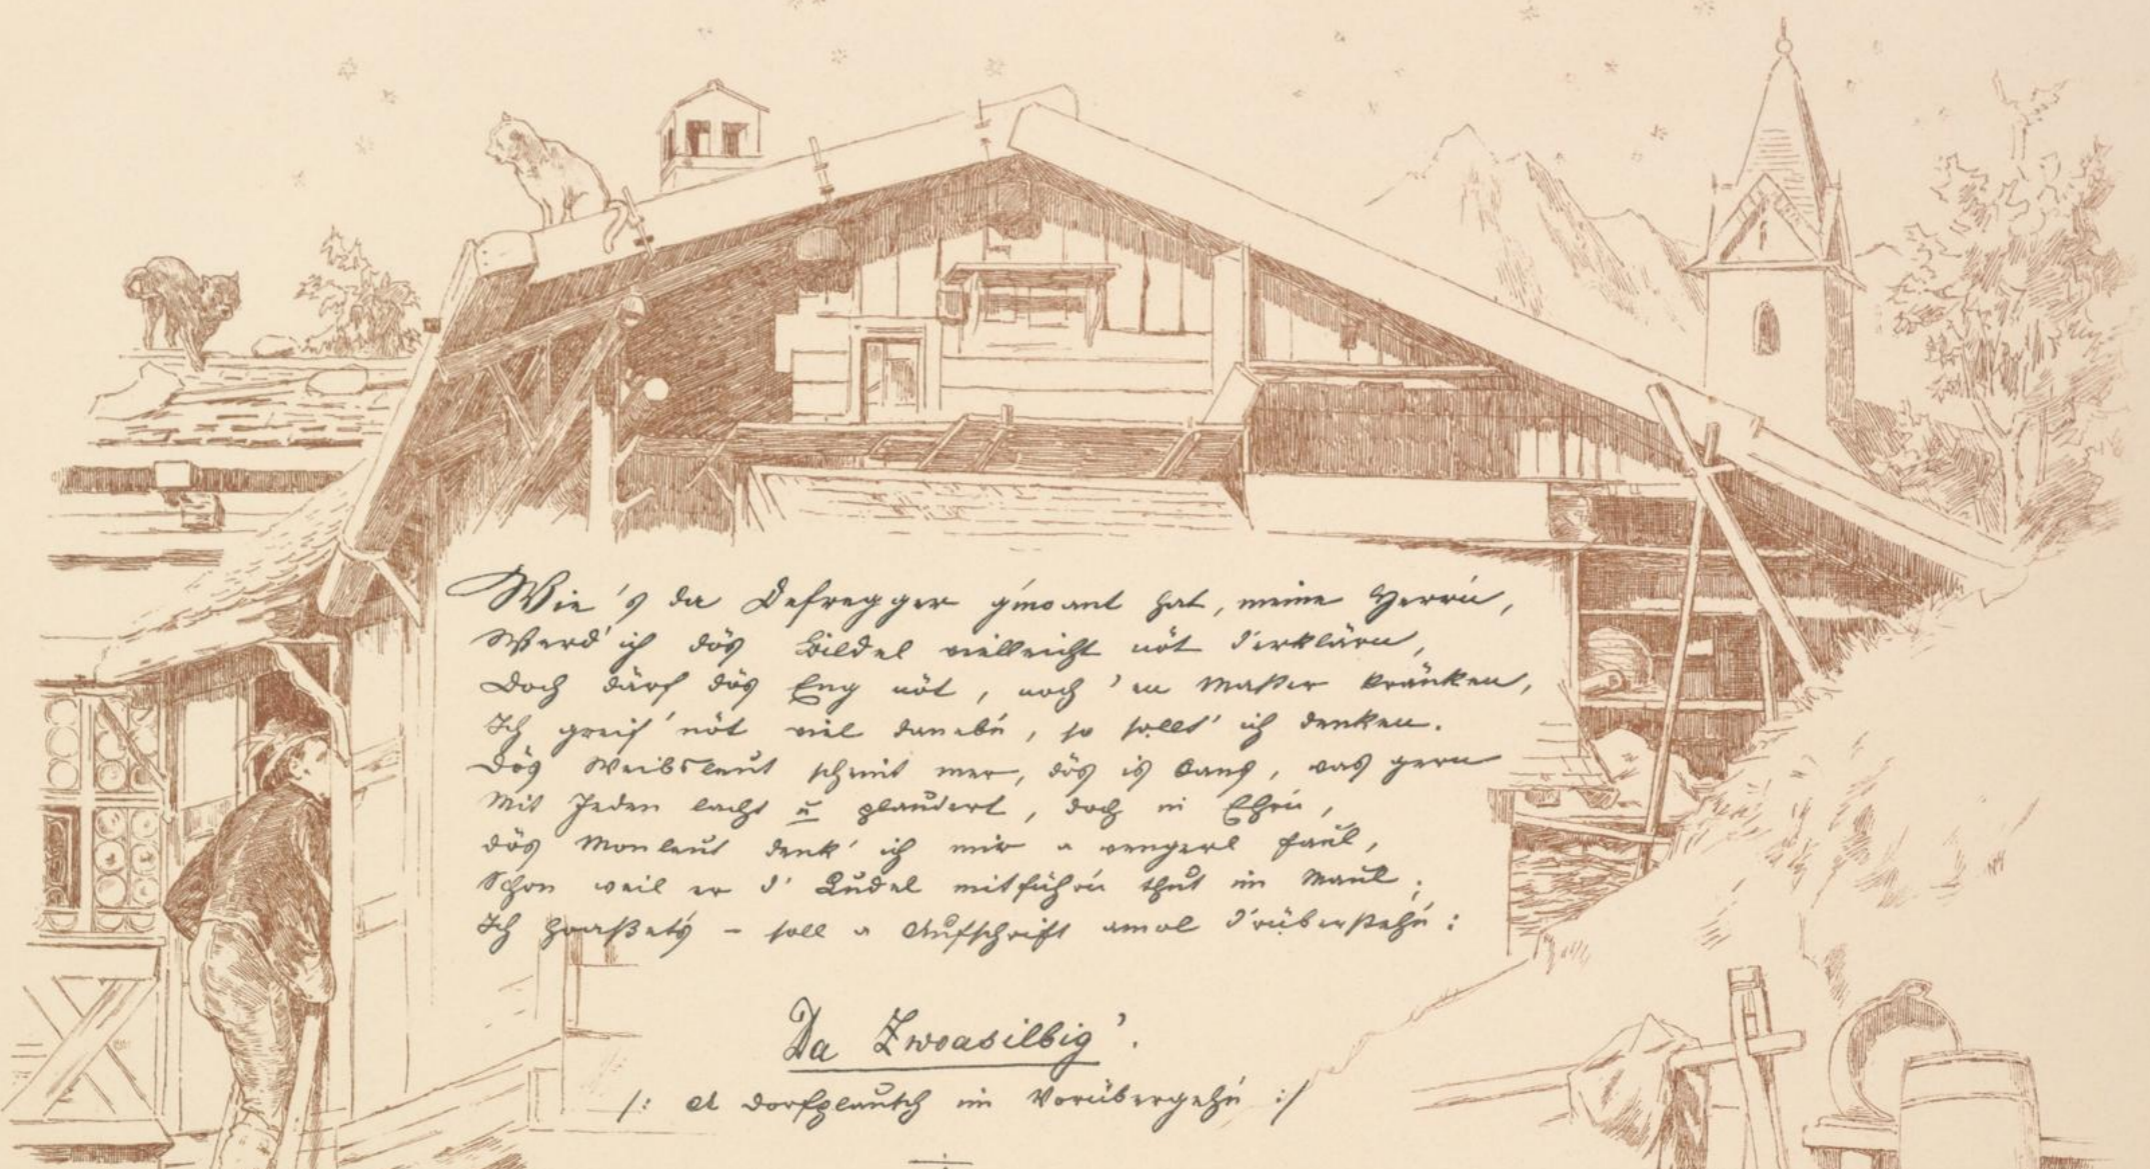 Wie's da Defregger g'moant hat, meine Herrn,
Werd' ich dös Bildel vielleicht nöt d'erklärn,
Doch därf dös Eng nöt, noch 'en Maßer kränken,
Ich greif' nöt viel daneb'n, so sollt' ich denken.
Dös Weibsleut scheint mer, dös is Oans, was gern
Mit Jeden lacht ū plaudert, doch in Ehr'n,
Dös Monleut denk' ich mir a wengerl faul,
Schon weil er d' Ludel mitführ'n thut im Maul;
Ich – soll a Aufschrift amol d'rüberstehn:
Da Zwoasilbig'.
/: A Dorfplausch im Vorübergehn :/